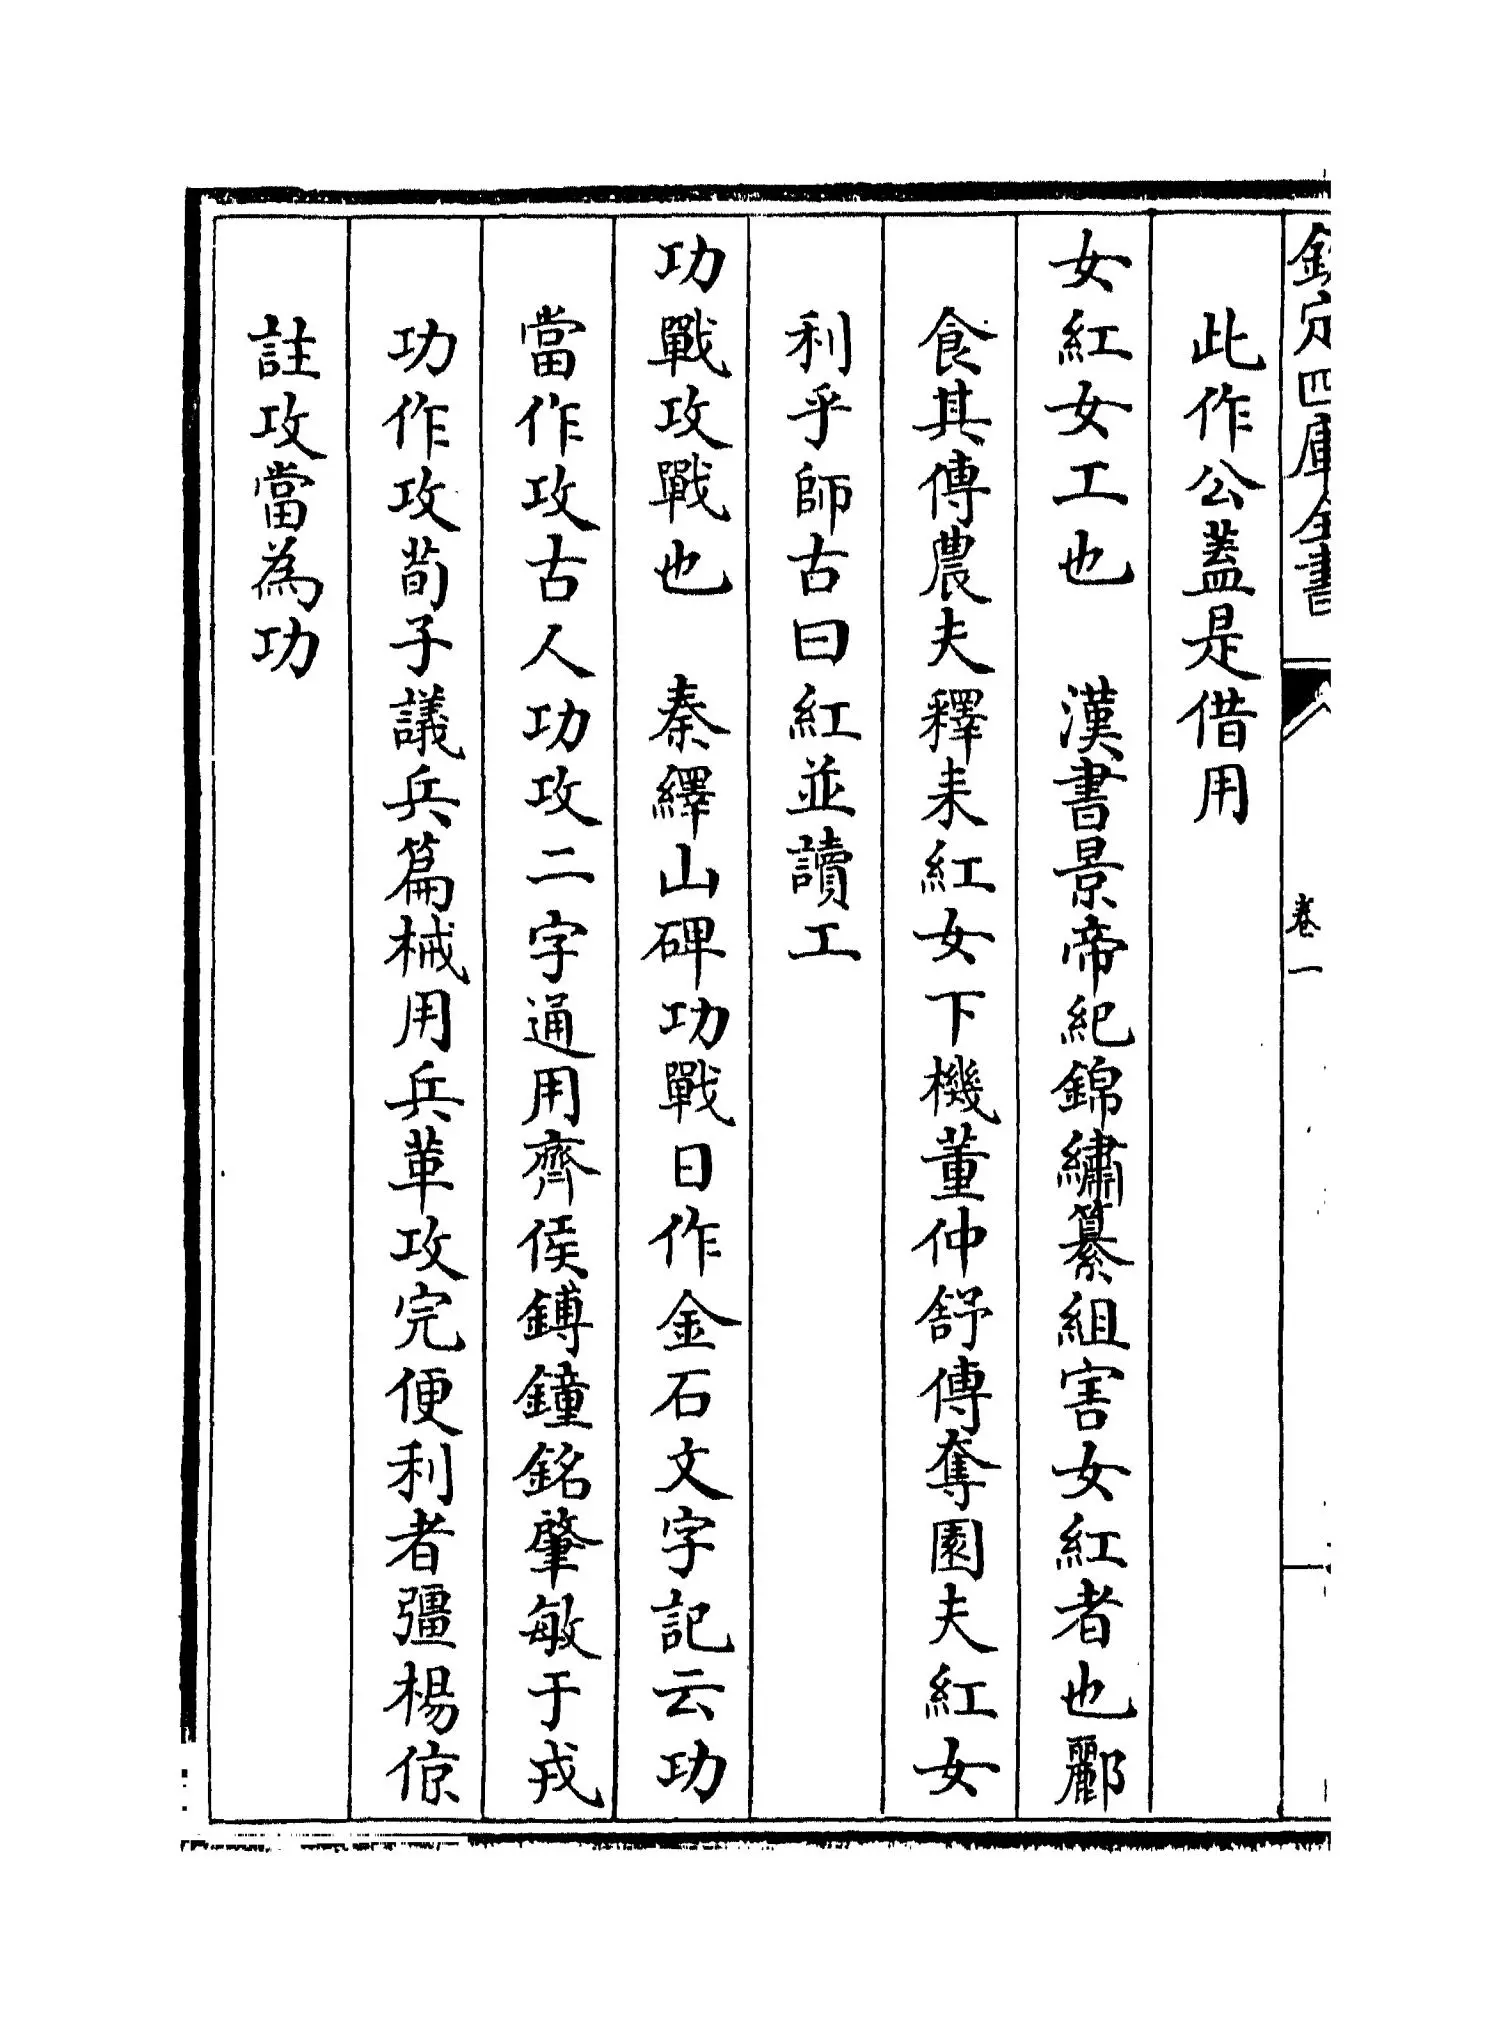 欽定四庫全書
卷一
此作公蓋是借用
女紅女工也　漢書景帝紀錦繡纂組害女紅者也酈
食其傳農夫釋耒紅女下機董仲舒傳奪園夫紅女
利乎師古曰紅並讀工
功戰攻戰也　秦繹山碑功戰日作金石文字記云功
當作攻古人功攻二字通用齊侯鎛鐘銘肇敏于戎
功作攻荀子議兵篇械用兵革攻完便利者彊楊倞
註攻當為功